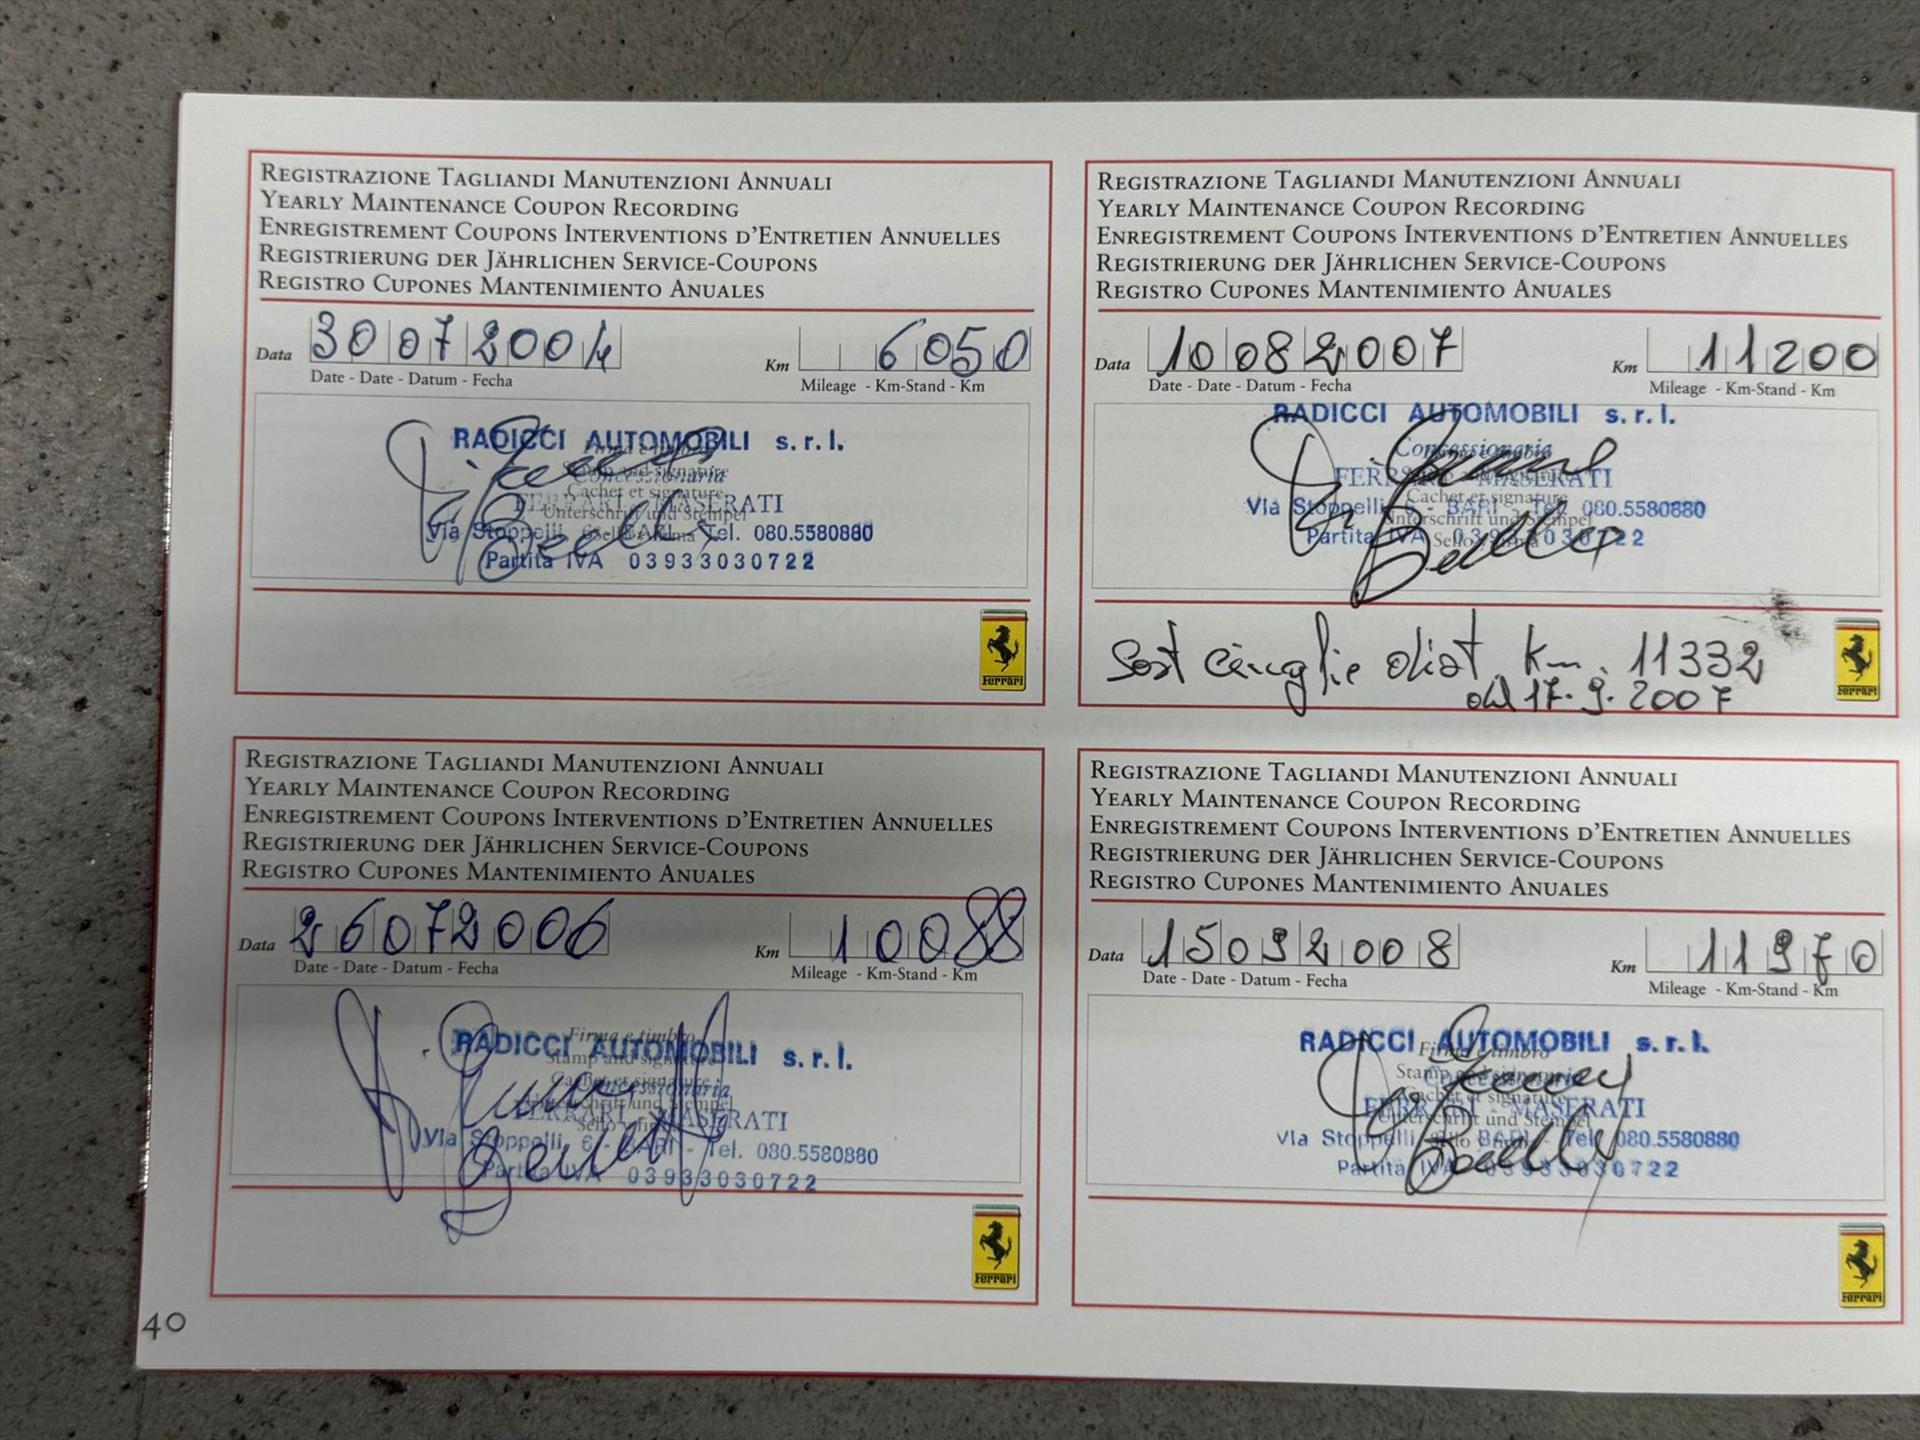 REGISTRAZIONE TAGLIANDI MANUTENZIONI ANNUALI
YEARLY MAINTENANCE COUPON RECORDING
ENREGISTREMENT COUPONS INTERVENTIONS D'ENTRETIEN ANNUELLES
REGISTRIERUNG DER JÄHRLICHEN SERVICE-COUPONS
REGISTRO CUPONES MANTENIMIENTO ANUALES
Data 30072004 Km 6050
Date - Date - Datum - Fecha Mileage - Km-Stand - Km
RADICCI AUTOMOBILI s.r.l.
Firma e timbro
Stamp and signature
Concessionaria
Cachet et signature
FERRARI - MASERATI
Unterschrift und Stempel
Via Stoppelli, 6 - BARI - Tel. 080.5580880
Partita IVA 03933030722
Ferrari
REGISTRAZIONE TAGLIANDI MANUTENZIONI ANNUALI
YEARLY MAINTENANCE COUPON RECORDING
ENREGISTREMENT COUPONS INTERVENTIONS D'ENTRETIEN ANNUELLES
REGISTRIERUNG DER JÄHRLICHEN SERVICE-COUPONS
REGISTRO CUPONES MANTENIMIENTO ANUALES
Data 10082007 Km 11200
Date - Date - Datum - Fecha Mileage - Km-Stand - Km
RADICCI AUTOMOBILI s.r.l.
Concessionaria
FERRARI - MASERATI
Cachet et signature
Via Stoppelli, 6 - BARI - Tel. 080.5580880
Unterschrift und Stempel
Partita IVA 03933030722
Sost cinghie dist. Km. 11332
del 17.9.2007
Ferrari
REGISTRAZIONE TAGLIANDI MANUTENZIONI ANNUALI
YEARLY MAINTENANCE COUPON RECORDING
ENREGISTREMENT COUPONS INTERVENTIONS D'ENTRETIEN ANNUELLES
REGISTRIERUNG DER JÄHRLICHEN SERVICE-COUPONS
REGISTRO CUPONES MANTENIMIENTO ANUALES
Data 26072006 Km 10088
Date - Date - Datum - Fecha Mileage - Km-Stand - Km
Firma e timbro
RADICCI AUTOMOBILI s.r.l.
Stamp and signature
Cachet et signature
Concessionaria
Unterschrift und Stempel
FERRARI - MASERATI
Via Stoppelli, 6 - BARI - Tel. 080.5580880
Partita IVA 03933030722
Ferrari
REGISTRAZIONE TAGLIANDI MANUTENZIONI ANNUALI
YEARLY MAINTENANCE COUPON RECORDING
ENREGISTREMENT COUPONS INTERVENTIONS D'ENTRETIEN ANNUELLES
REGISTRIERUNG DER JÄHRLICHEN SERVICE-COUPONS
REGISTRO CUPONES MANTENIMIENTO ANUALES
Data 15092008 Km 11970
Date - Date - Datum - Fecha Mileage - Km-Stand - Km
RADICCI AUTOMOBILI s.r.l.
Firma e timbro
Stamp and signature
Concessionaria
Cachet et signature
FERRARI - MASERATI
Unterschrift und Stempel
Via Stoppelli, 6 - BARI - Tel. 080.5580880
Partita IVA 03933030722
Ferrari
40